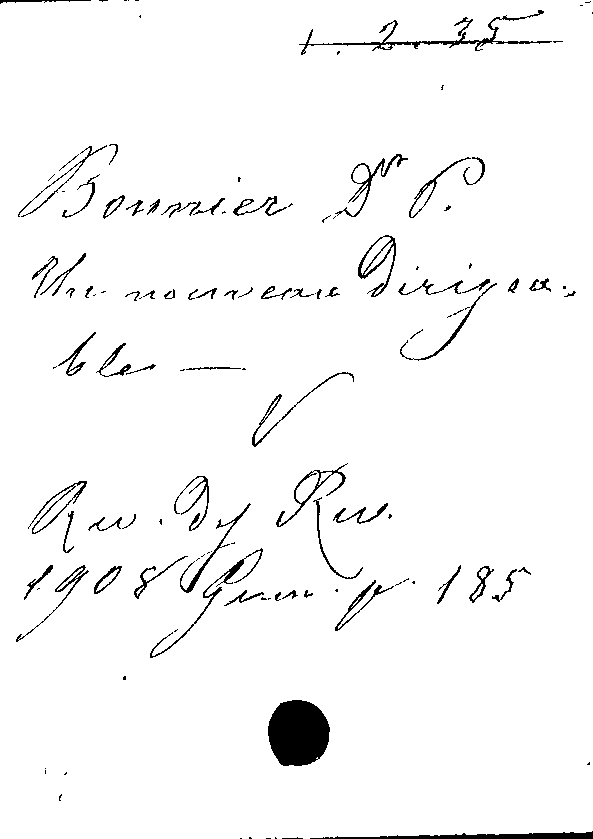 1.2.35
Bonnier Dr P.
Un nouveau Dirigea-
ble —
V
Rev. Dy Rev.
1908 Juin. p. 185